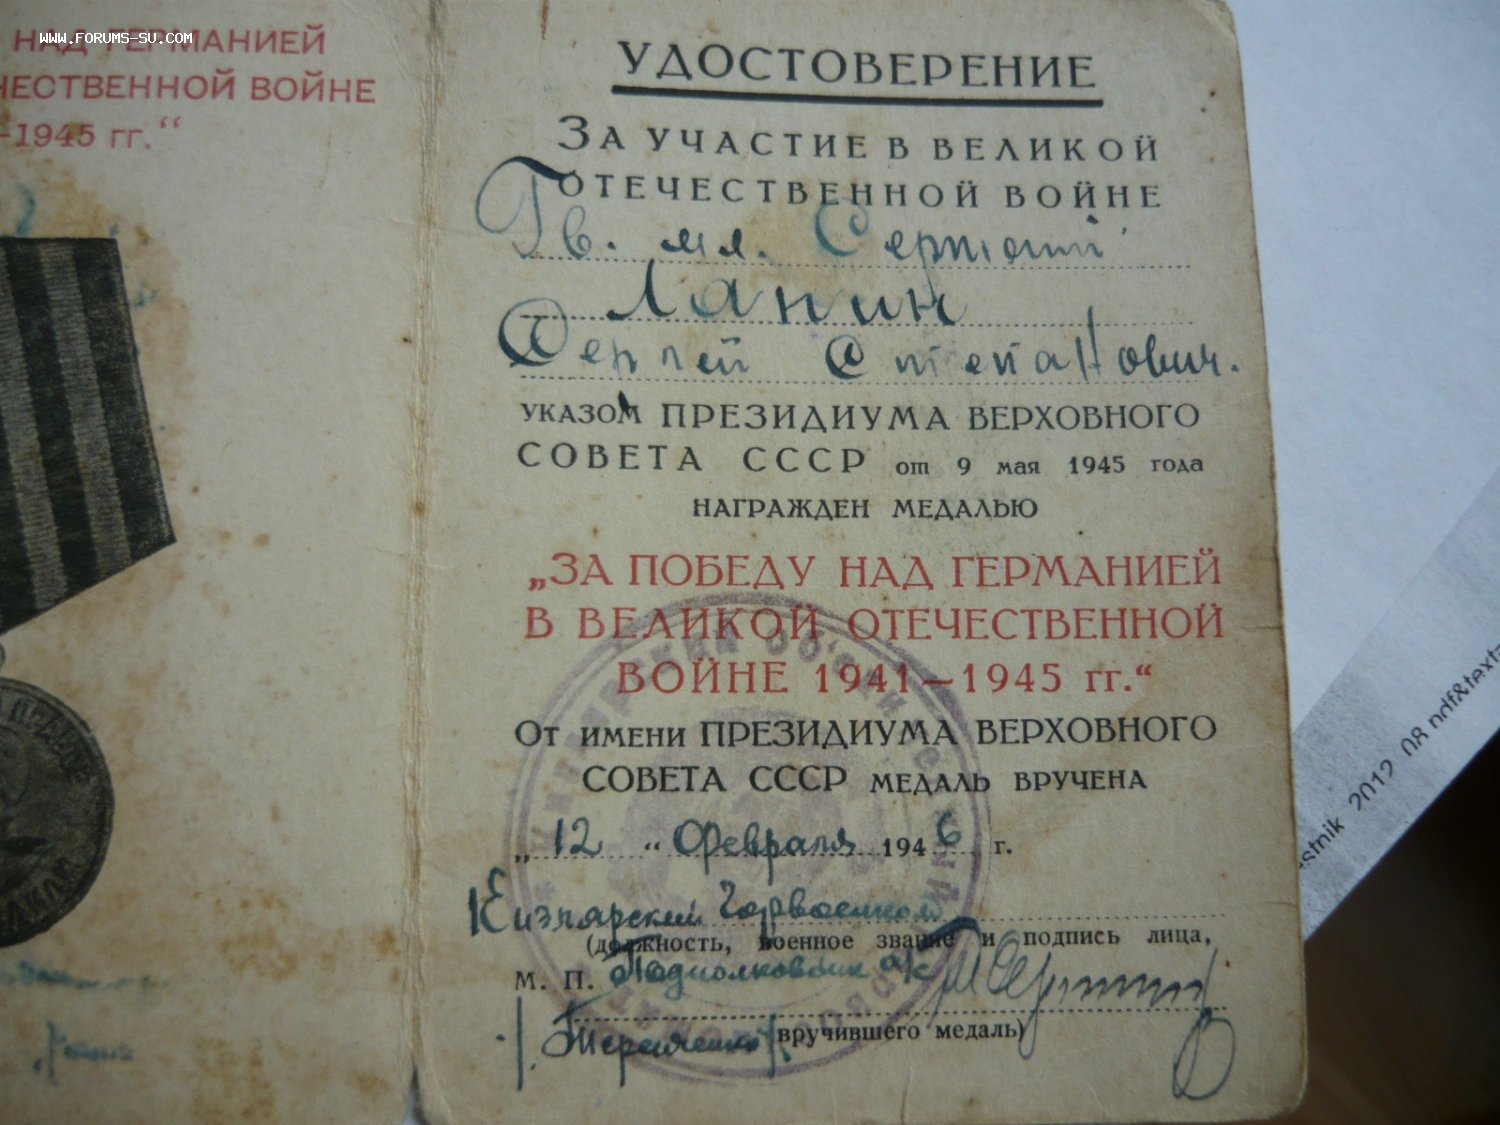 www.forums-su.com
НАД ГЕРМАНИЕЙ
ЧЕСТВЕННОЙ ВОЙНЕ
–1945 гг.“
УДОСТОВЕРЕНИЕ
ЗА УЧАСТИЕ В ВЕЛИКОЙ
ОТЕЧЕСТВЕННОЙ ВОЙНЕ
Гв. мл. Сержант
Лапин
Сергей Степанович.
УКАЗОМ ПРЕЗИДИУМА ВЕРХОВНОГО
СОВЕТА СССР от 9 мая 1945 года
НАГРАЖДЕН МЕДАЛЬЮ
„ЗА ПОБЕДУ НАД ГЕРМАНИЕЙ
В ВЕЛИКОЙ ОТЕЧЕСТВЕННОЙ
ВОЙНЕ 1941–1945 гг.“
ОТ ИМЕНИ ПРЕЗИДИУМА ВЕРХОВНОГО
СОВЕТА СССР МЕДАЛЬ ВРУЧЕНА
„12“ Февраля 1946 г.
Кизлярский Горвоенком
(должность, военное звание и подпись лица,
М. П. Подполковник а/с
/Терещенко/ вручившего медаль)
stnik 2012 08.pdf&text